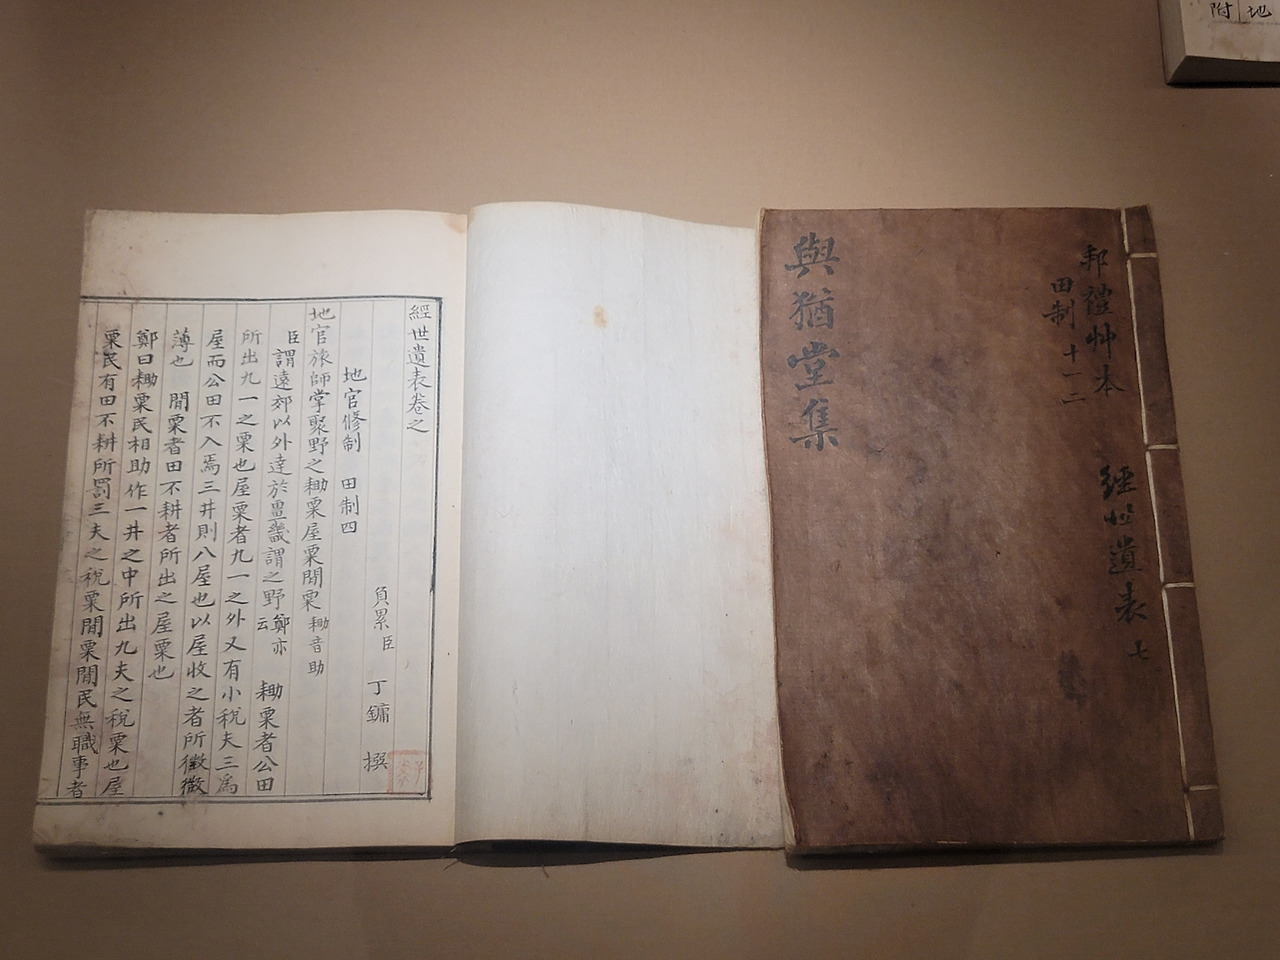 與猶堂集
邦禮艸本
田制 十一 二
經世遺表 七
經世遺表卷之
負累臣 丁鏞 撰
地官修制 田制四
地官旅師掌聚野之耡粟屋粟閒粟 耡音助
臣謂遠郊以外達於畺畿謂之野 鄭亦云 耡粟者公田
所出九一之粟也屋粟者九一之外又有小稅夫三爲
屋而公田不入焉三井則八屋也以屋收之者所徵徵
薄也 閒粟者田不耕者所出之屋粟也
鄭曰耡粟民相助作一井之中所出九夫之稅粟也屋
粟民有田不耕所罰三夫之稅粟閒粟閒民無職事者
附 地